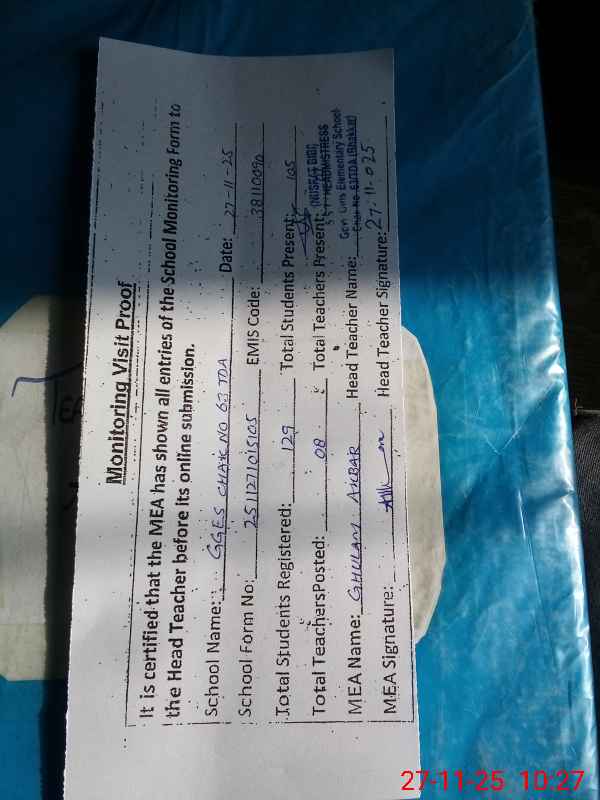 Monitoring Visit Proof
It is certified that the MEA has shown all entries of the School Monitoring Form to
the Head Teacher before its online submission.
School Name: GGES CHAK NO 63 TDA Date: 27-11-25
School Form No: 2511271015105 EMIS Code: 38110090
Total Students Registered: 129 Total Students Present: 105
Total TeachersPosted: 08 Total Teachers Present:
MEA Name: GHULAM AKBAR Head Teacher Name:
MEA Signature: Head Teacher Signature: 27.11.025
HEADMISTRESS
Girls Elementary School
Chak No. 63/TDA (Bhakkar)
TEA
27-11-25 10:27